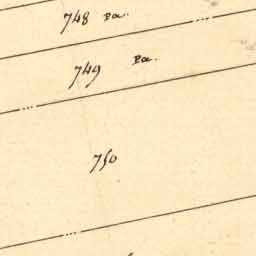 748 Pa.
749 Pa.
750